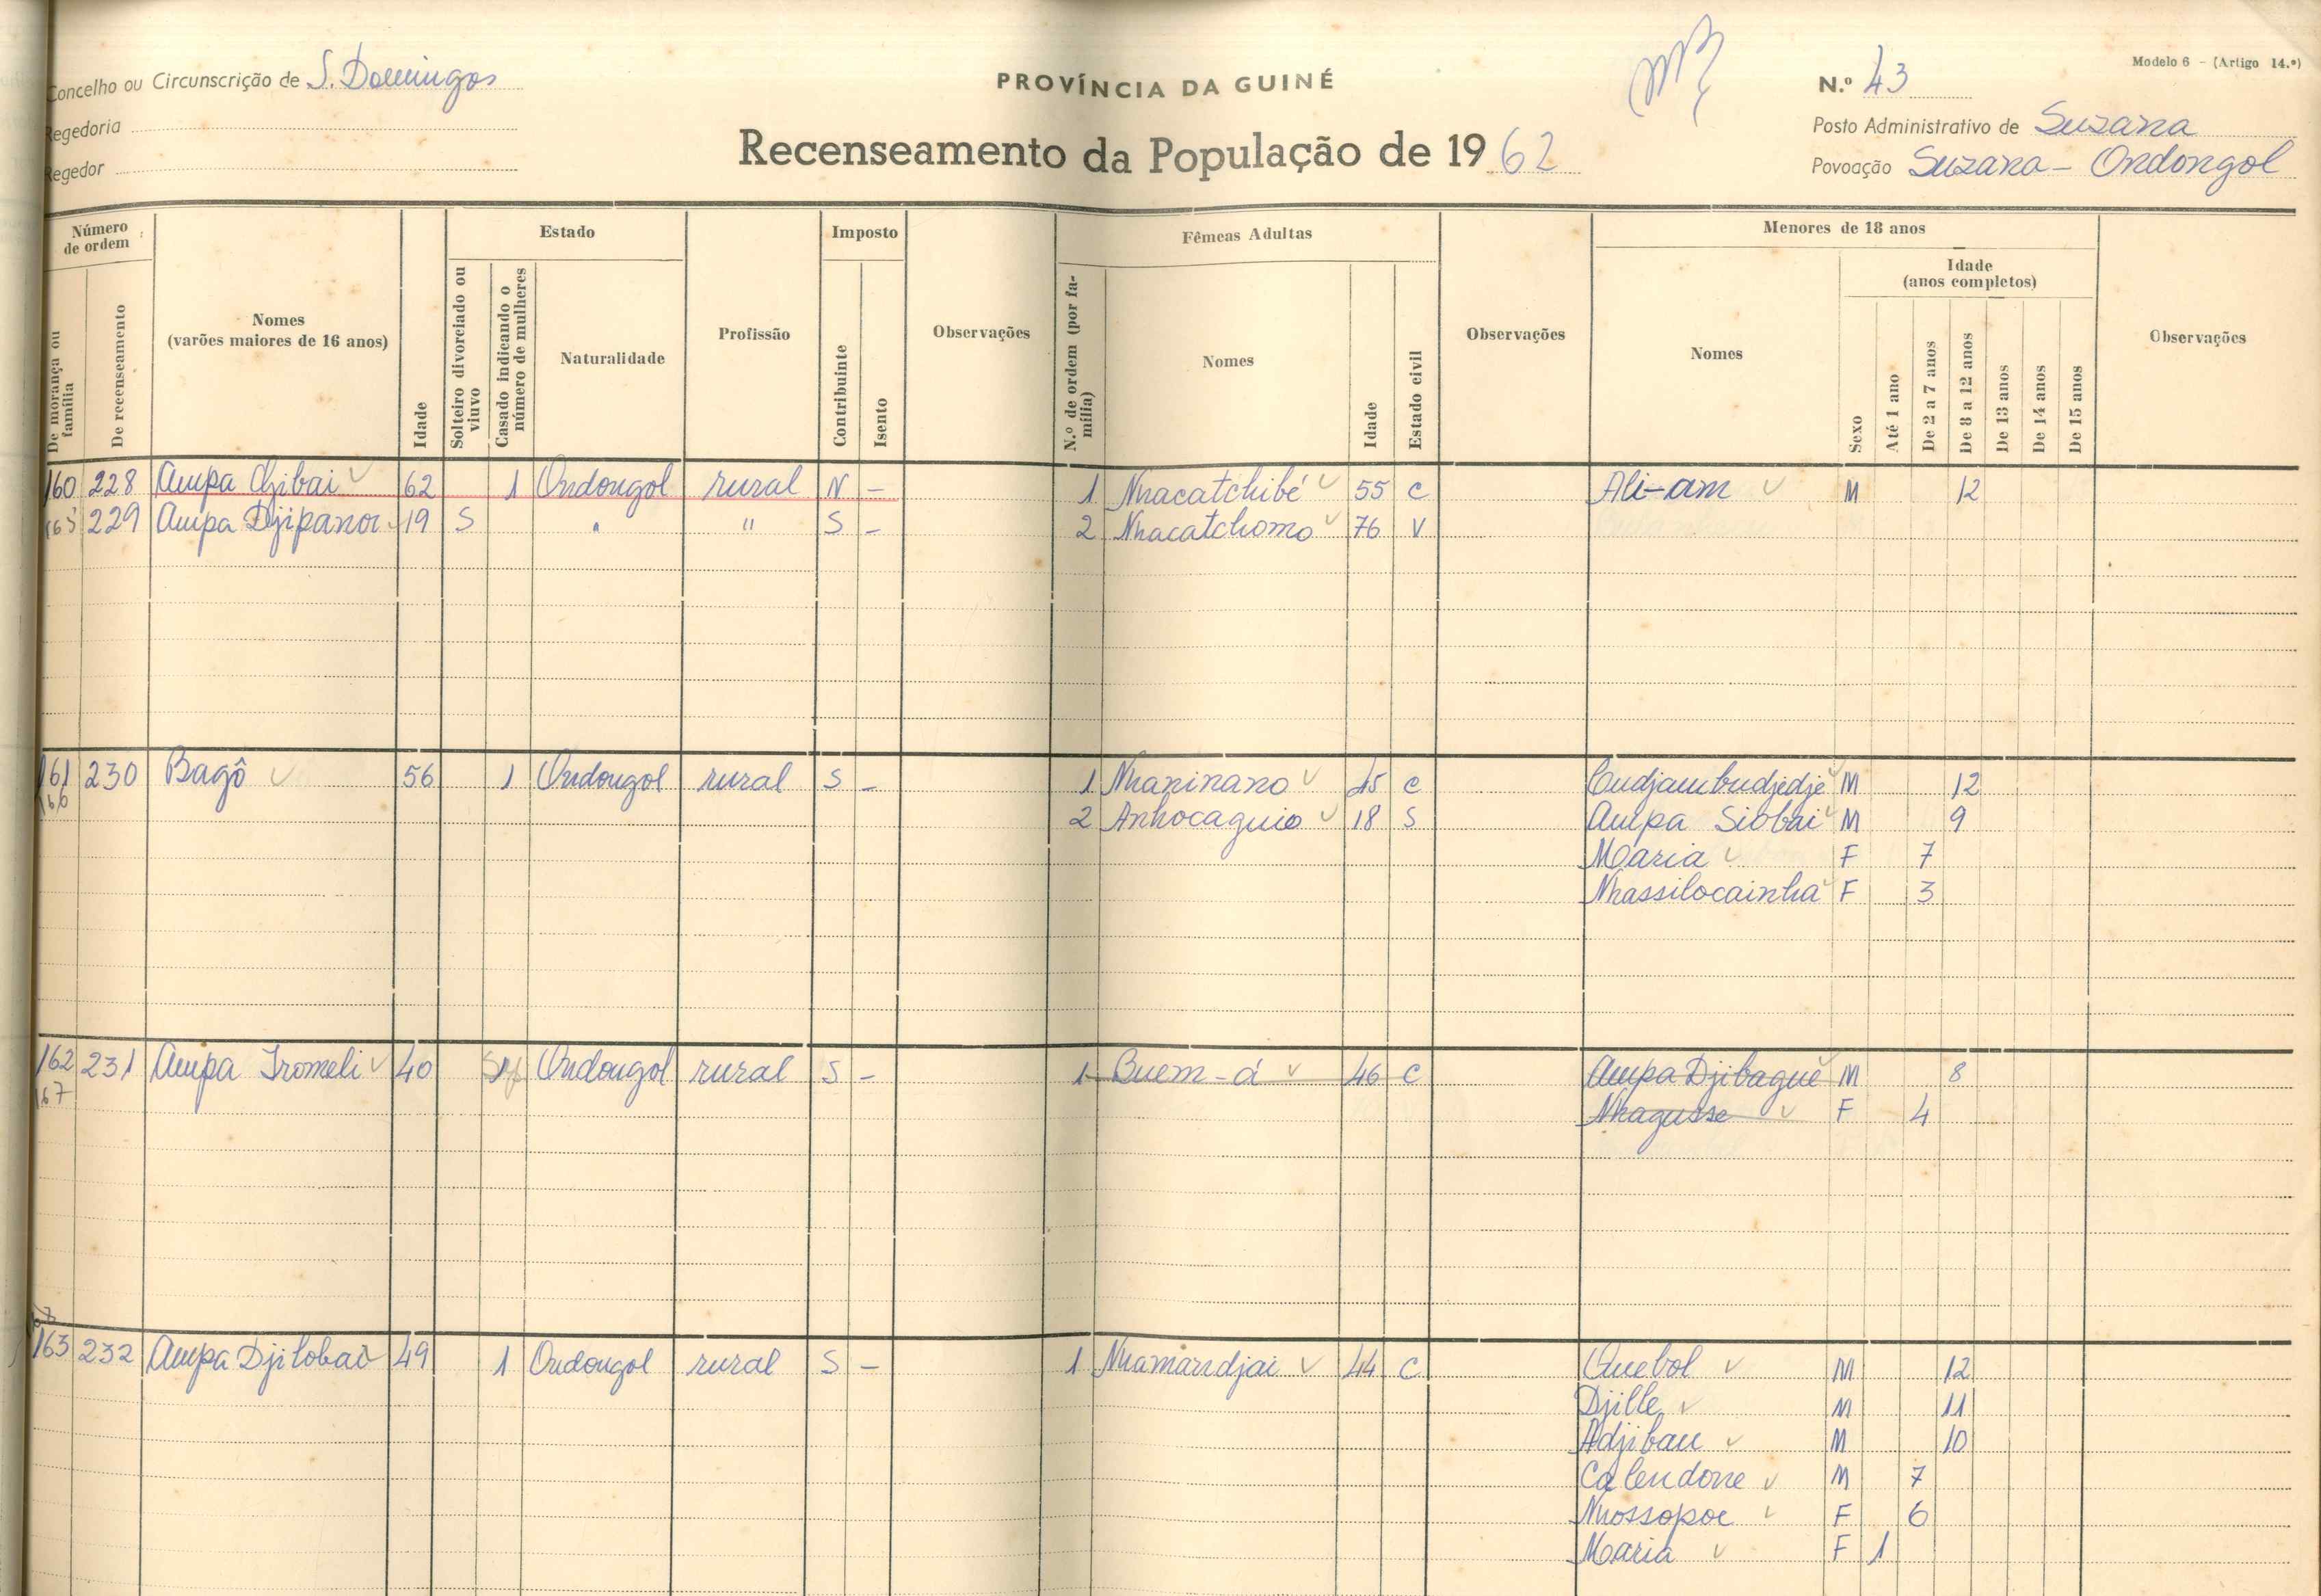 Modelo 6 - (Artigo 14.º)
Concelho ou Circunscrição de S. Domingos
PROVÍNCIA DA GUINÉ
N.º 43
Regedoria
Posto Administrativo de Suzana
Regedor
Recenseamento da População de 1962
Povoação Suzana - Ondongol
Número de ordem
Estado
Imposto
Fêmeas Adultas
Menores de 18 anos
Idade (anos completos)
De morança ou família
De recenseamento
Nomes (varões maiores de 16 anos)
Idade
Solteiro divorciado ou viuvo
Casado indicando o número de mulheres
Naturalidade
Profissão
Contribuinte
Isento
Observações
N.º de ordem (por família)
Nomes
Idade
Estado civil
Observações
Nomes
Sexo
Até 1 ano
De 2 a 7 anos
De 8 a 12 anos
De 13 anos
De 14 anos
De 15 anos
Observações
160 228 Ampa 62 1 Ondongol rural N - 1 Nhacatchibé 55 C Ali-am M 12
165 229 Ampa Djipanor 19 S " " S - 2 Nhacatchomo 76 V
161 230 Bagô 56 1 Ondongol rural S - 1 Nhaninano 45 C Cudjambudjedje M 12
166 2 Anhocaguio 18 S Ampa Siobai M 9
Maria F 7
Nhassilocainha F 3
162 231 Ampa Iromeli 40 Ondongol rural S - 1 Buem-á 46 C Ampa Djibaguê M 8
167 Nhagusse F 4
163 232 Ampa Djilobai 49 1 Ondongol rural S - 1 Nhamandjai 44 C Quebol M 12
Djille M 11
Adjibau M 10
Calendone M 7
Nhossopoe F 6
Maria F 1